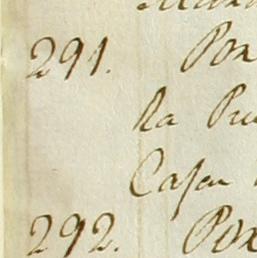 291. Por
la Pu
Casa
292. Por